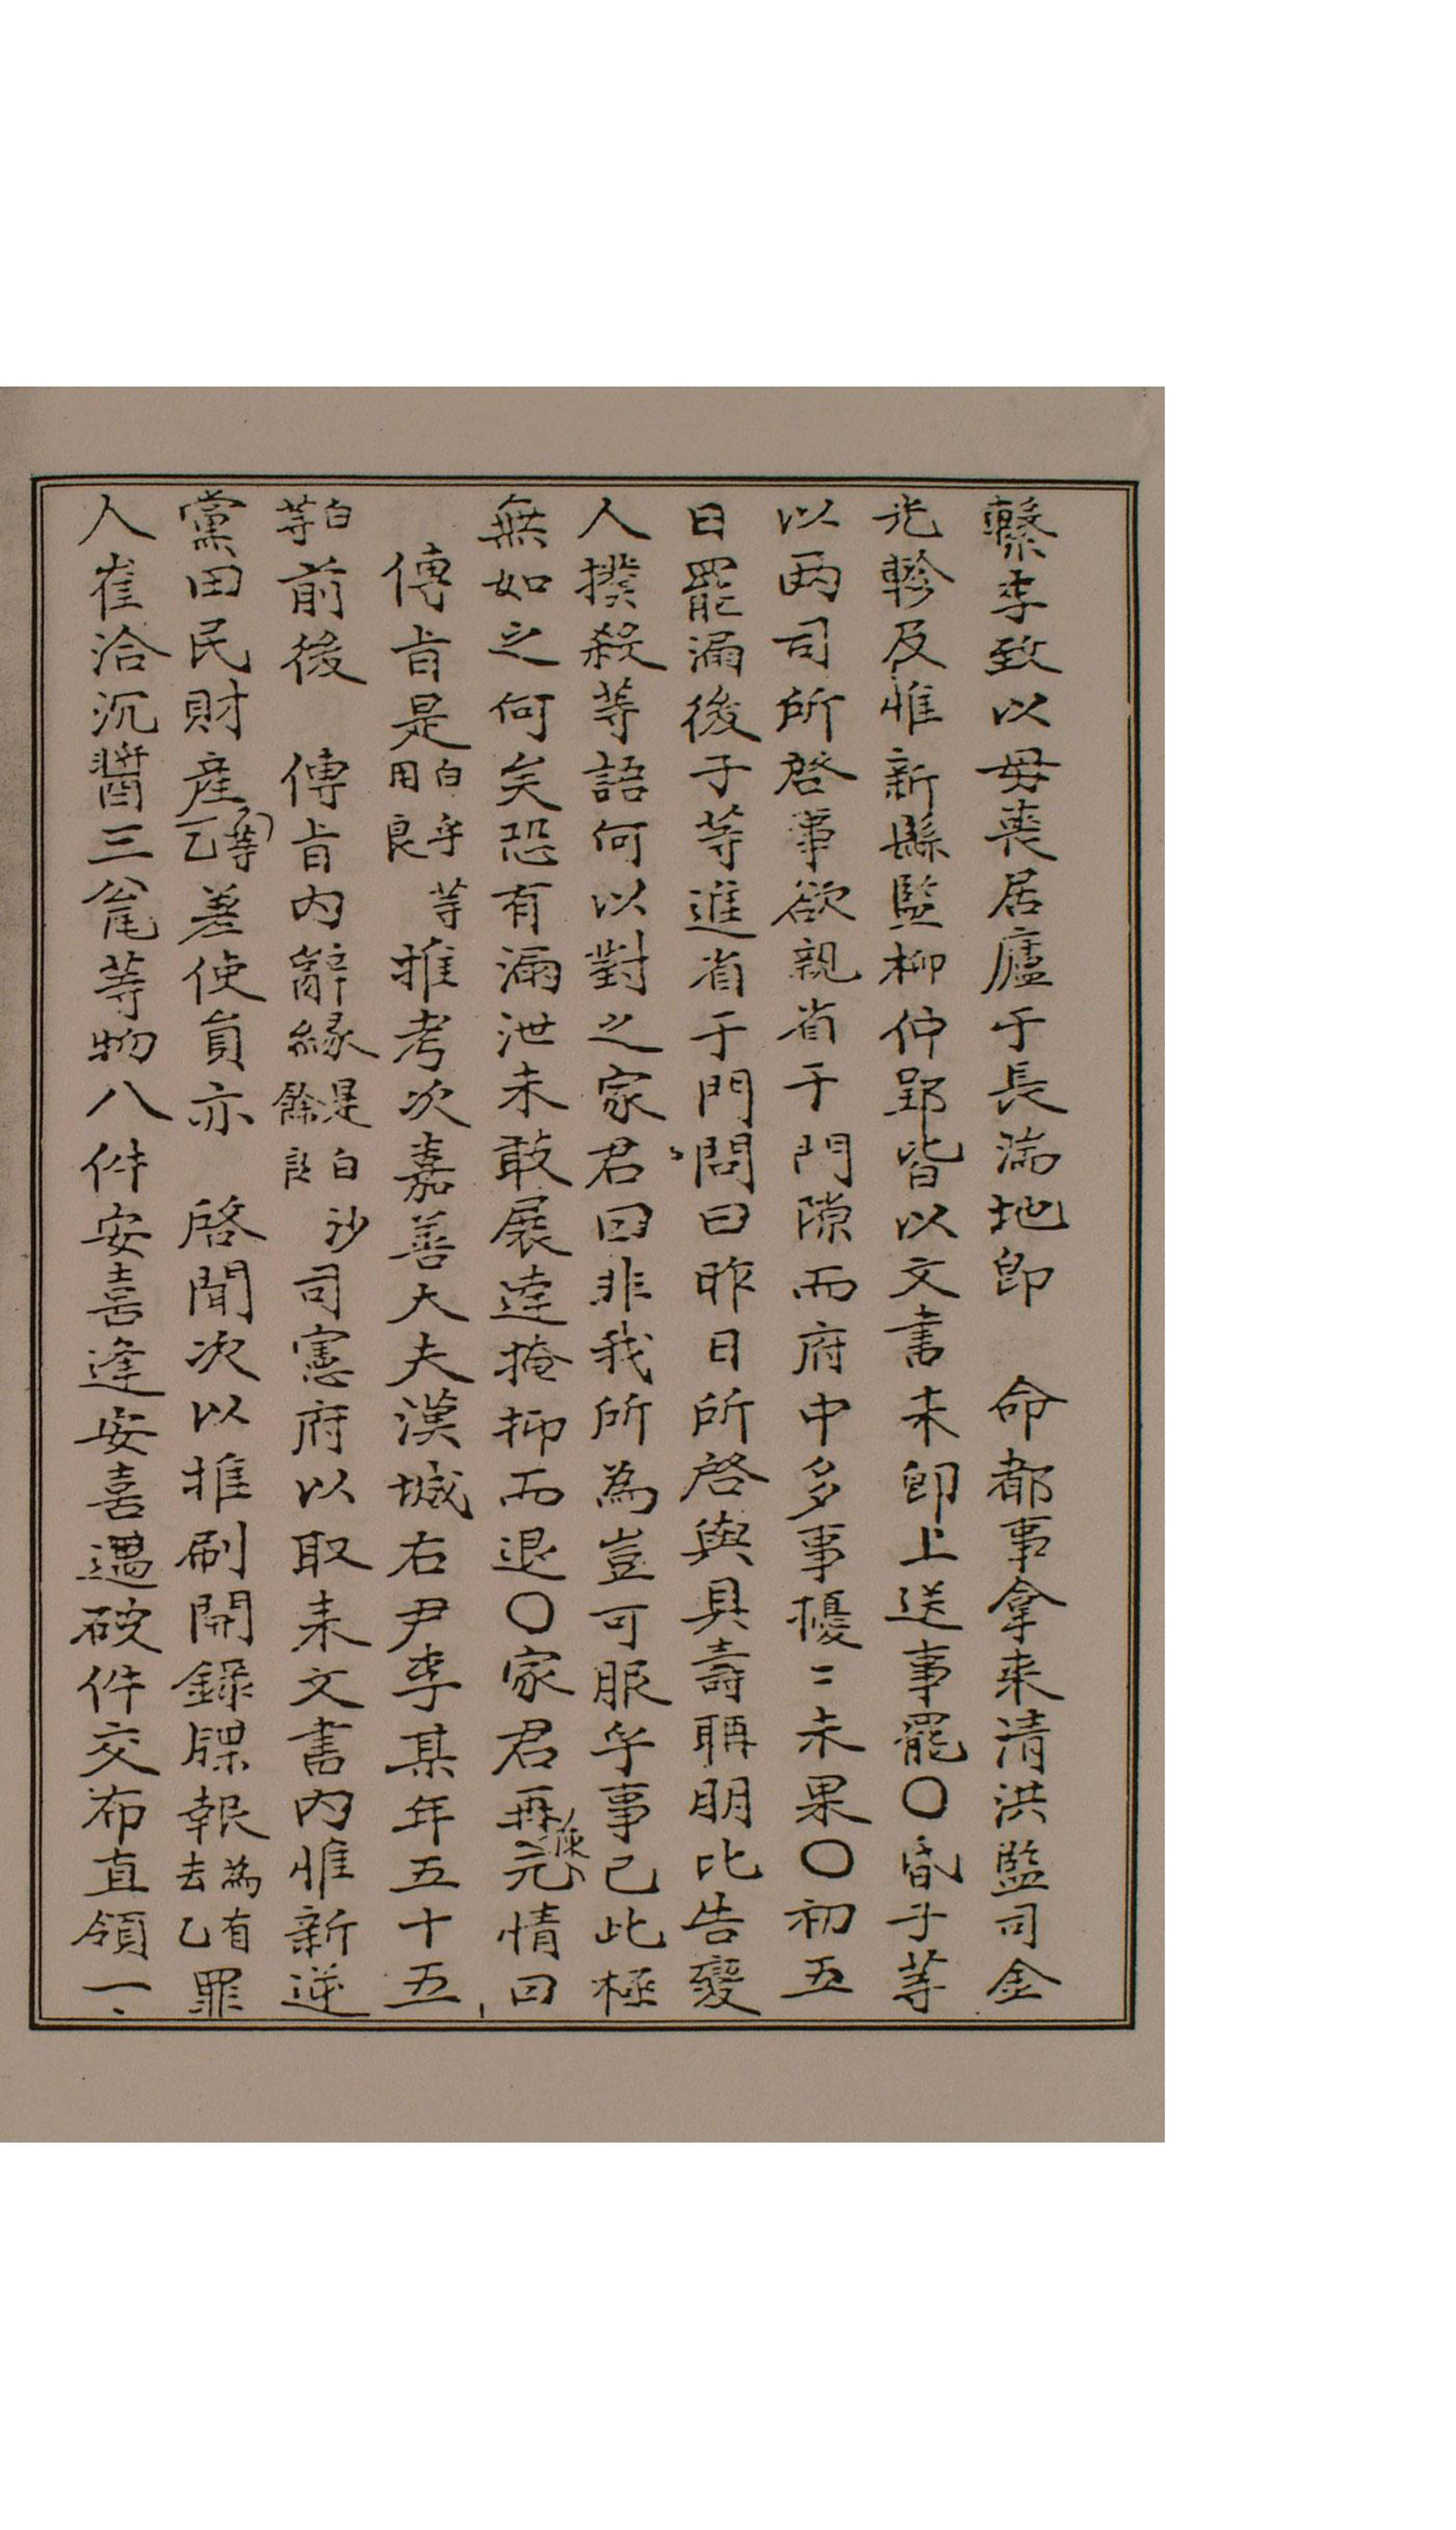 繫李致以毋喪居廬于長湍地即　命都事拿来清洪監司金
光軫及惟新縣監柳仲郢皆以文書未即上送事罷〇昏子等
以両司所啓事欲親省于門隙而府中多事擾〻未果〇初五
日罷漏後子等進省于門問曰昨日所啓與具壽聃朋比告變
人撲殺等語何以對之家君曰非我所為豈可服乎事已此極
無如之何矣恐有漏泄未敢展達掩抑而退〇家君再元情曰
傳旨是白乎等用良推考次嘉善大夫漢城右尹李某年五十五
白等前後　傳旨内辭緣是白餘良沙司憲府以取来文書内惟新逆
黨田民財産等乙差使員亦　啓聞次以推刷開錄牒報為有去乙罪
人崔洽沉醬三瓮等物八件安喜逢安喜遇破件交布直領一